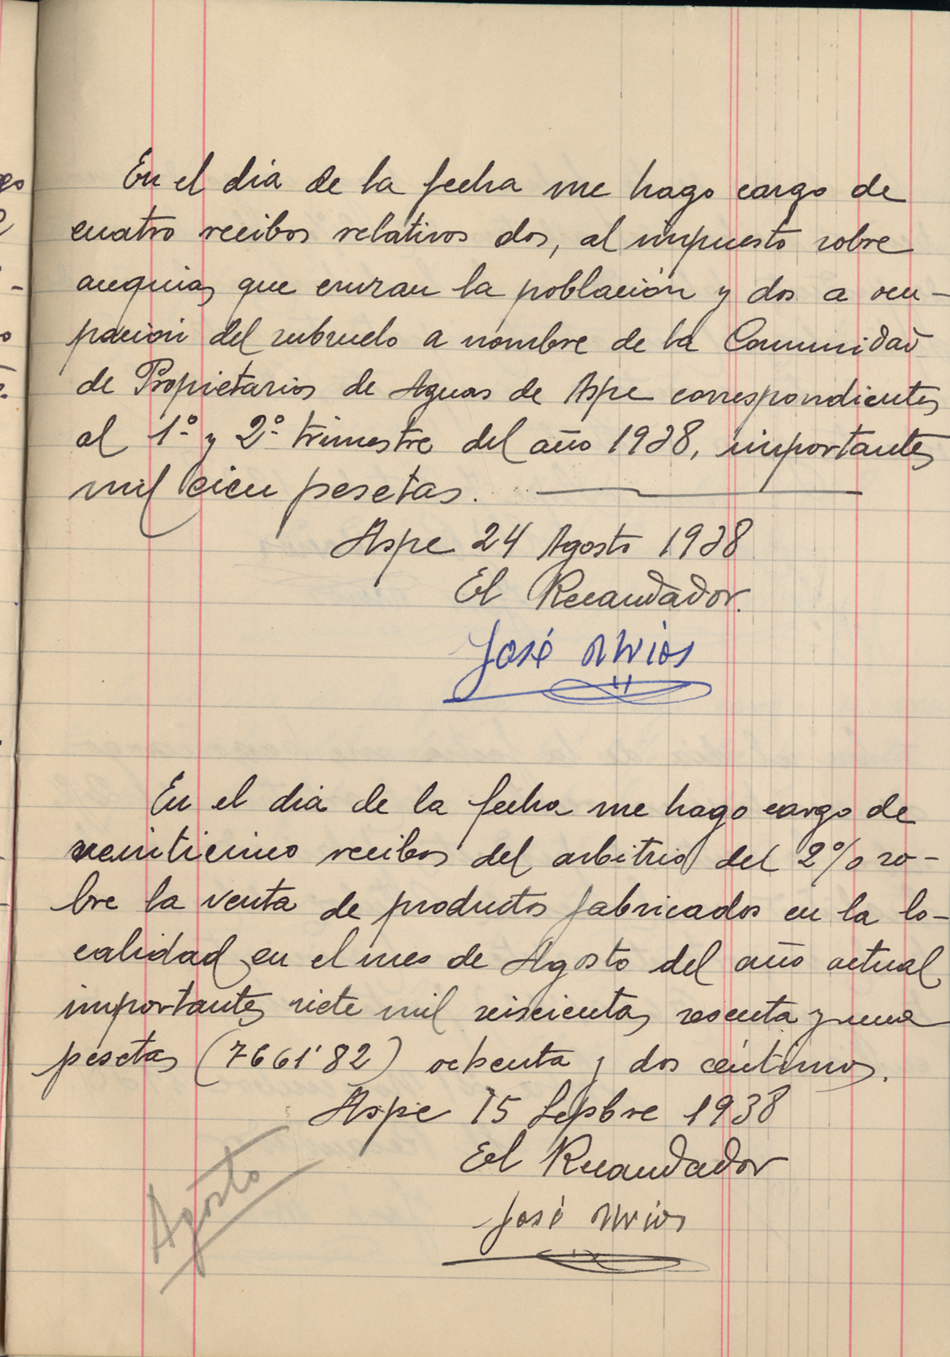 En el dia de la fecha me hago cargo de
cuatro recibos relativos dos, al impuesto sobre
acequias que cruzan la población y dos a ocu-
pación del subsuelo a nombre de la Comunidad
de Propietarios de Aguas de Aspe correspondientes
al 1º y 2º trimestre del año 1938, importantes
mil cien pesetas.
Aspe 24 Agosto 1938
El Recaudador.
José
En el dia de la fecha me hago cargo de
veinticinco recibos del arbitrio del 2% so-
bre la venta de productos fabricados en la lo-
calidad en el mes de Agosto del año actual
importantes siete mil seiscientas sesenta y una
pesetas (7661'82) ochenta y dos céntimos.
Aspe 15 Sepbre 1938
El Recaudador
José
Agosto